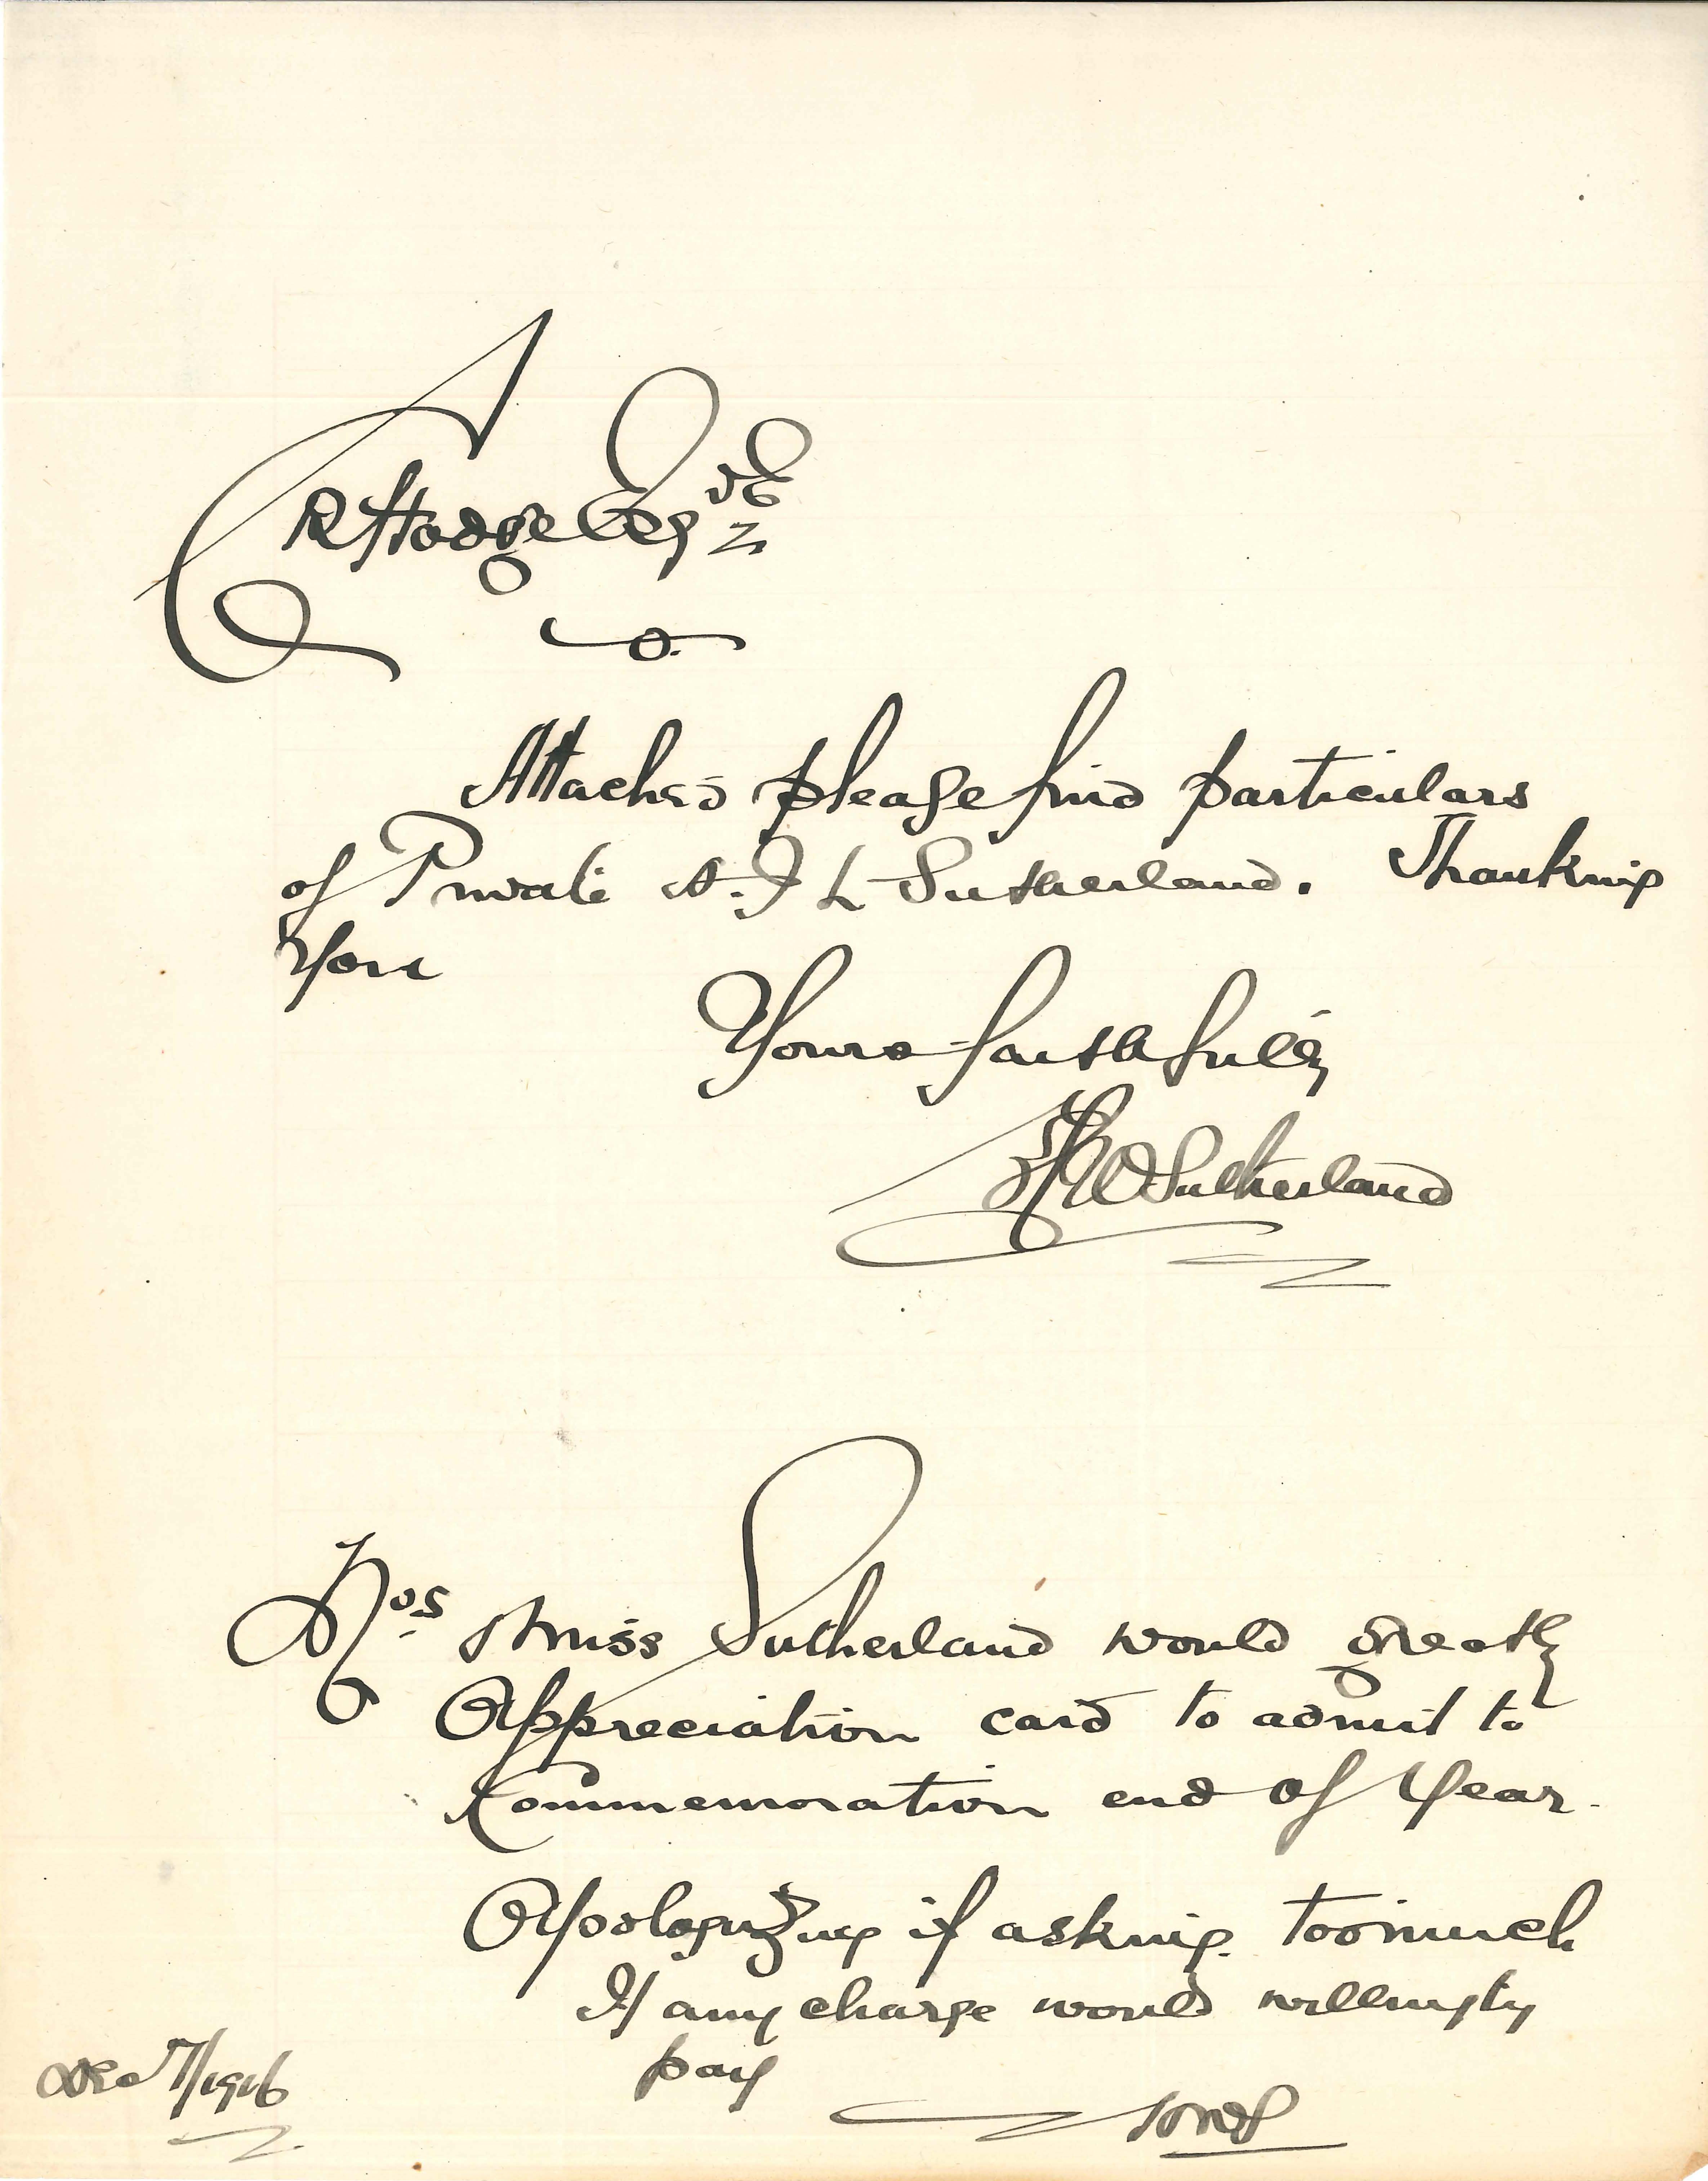 R Hodge Esq re
Attached please find particulars
of Private A. J L Sutherland. Thanking
You
Yours faithfully
Sutherland
Miss Sutherland would greatly
Appreciation card to admit to
Commemoration end of Year.
Apologizing if asking too much
If any charge would willingly
pay
Dec 7/1916